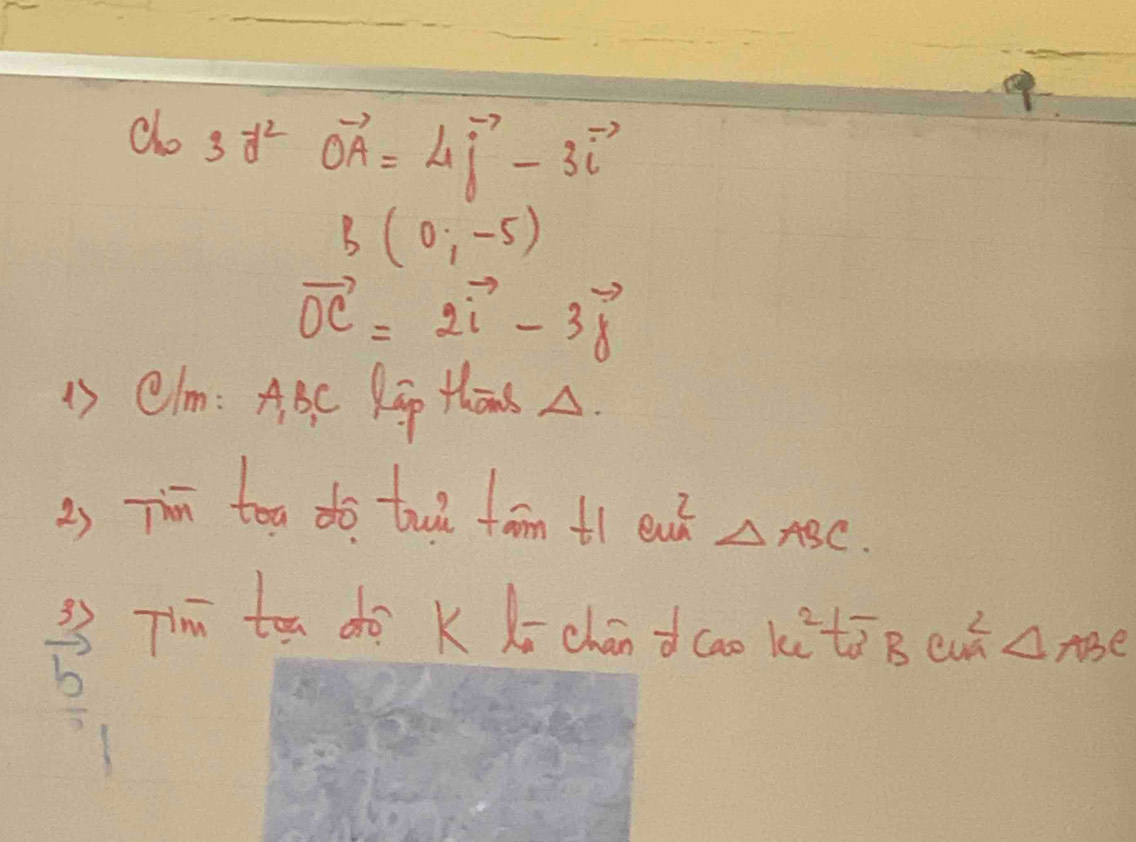 Cho 3 đ² \(\overrightarrow{OA} = 4\vec{j} - 3\vec{i}\)
B (0; -5)
\(\overrightarrow{OC} = 2\vec{i} - 3\vec{j}\)
1> C/m: A,B,C lập thành Δ.
2> Tìm toạ độ trực tâm H của Δ ABC.
3> Tìm tọa độ K là chân đ cao kẻ từ B của Δ ABC
\(\vec{b}\)